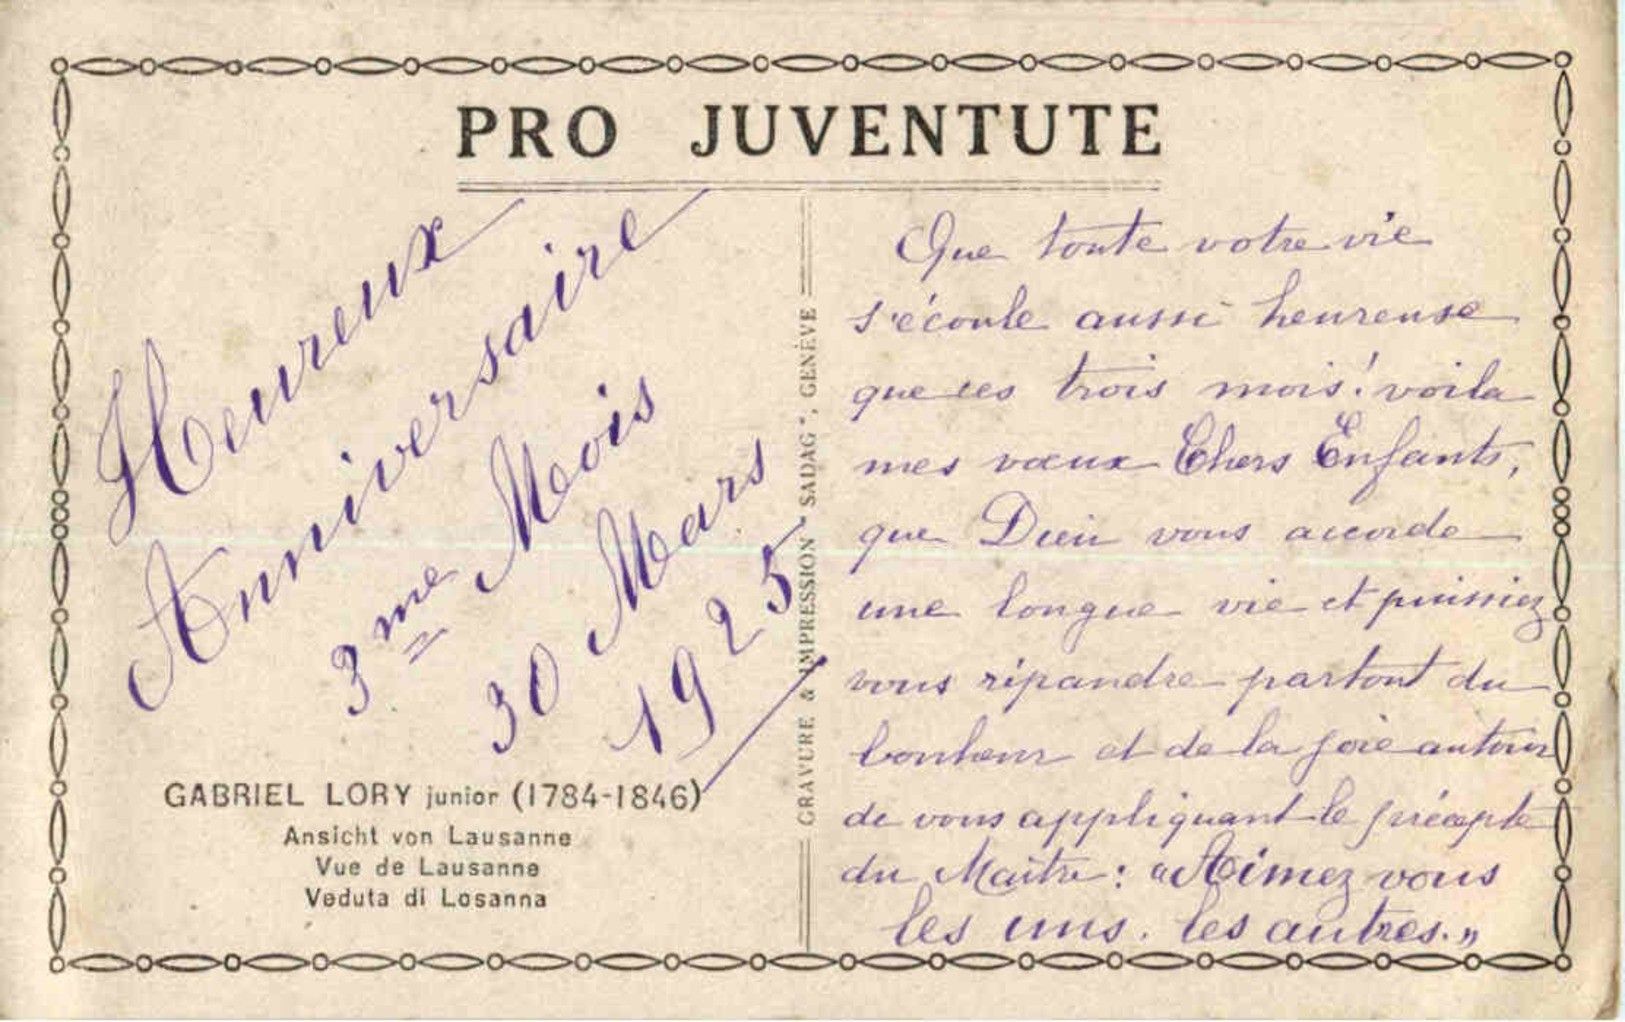 PRO JUVENTUTE
Heureux
Anniversaire
3me Mois
30 Mars
1925
GABRIEL LORY junior (1784-1846)
Ansicht von Lausanne
Vue de Lausanne
Veduta di Losanna
GRAVURE & IMPRESSION "SADAG", GENÈVE
Que toute votre vie
s'écoule aussi heureuse
que ces trois mois! voila
mes vœux Chers Enfants,
que Dieu vous accorde
une longue vie et puissiez
vous répandre partout du
bonheur et de la joie autour
de vous appliquant le précepte
du Maître : "Aimez vous
les uns. les autres."